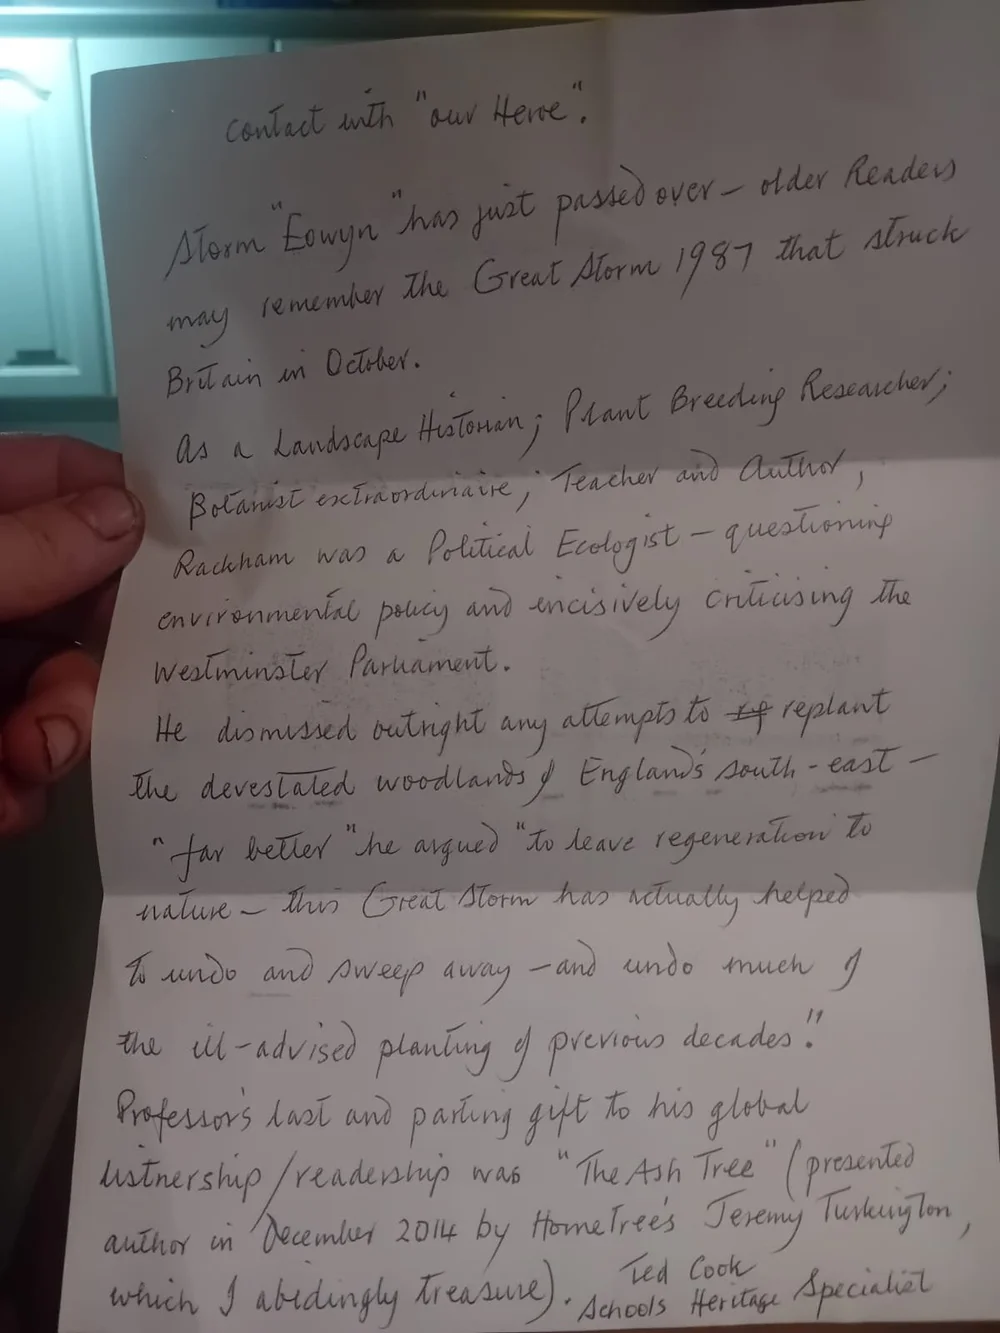 contact with "our Heroe".
Storm "Eowyn" has just passed over – older Readers
may remember the Great Storm 1987 that struck
Britain in October.
As a Landscape Historian; Plant Breeding Researcher;
Botanist extraordinaire; Teacher and Author,
Rackham was a Political Ecologist – questioning
environmental policy and incisively criticising the
Westminster Parliament.
He dismissed outright any attempts to replant
the devestated woodlands of England's south-east –
"far better" he argued "to leave regeneration to
nature – this Great Storm has actually helped
to undo and sweep away – and undo much of
the ill-advised planting of previous decades."
Professor's last and parting gift to his global
listnership/readership was "The Ash Tree" (presented
author in December 2014 by HomeTree's Jeremy Turkington,
which I abidingly treasure). Ted Cook
Schools Heritage Specialist